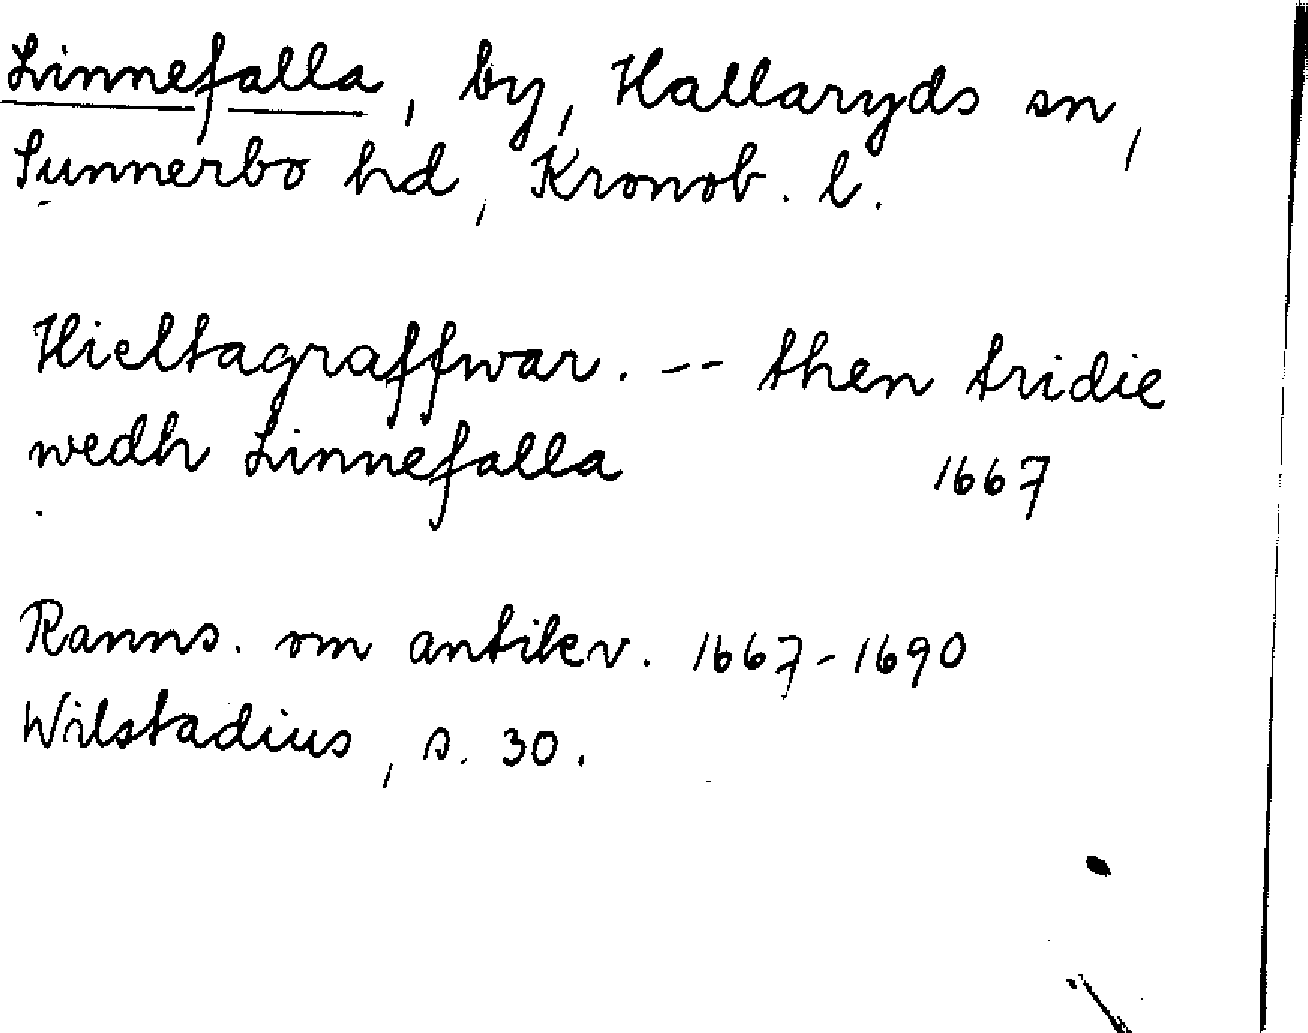 Linnefalla, by, Hallaryds sn,
Sunnerbo hd, Kronob. l.
Hieltagraffwar. -- then tridie
wedh Linnefalla 1667
Ranns. om antikv. 1667-1690
Wilstadius, s. 30.